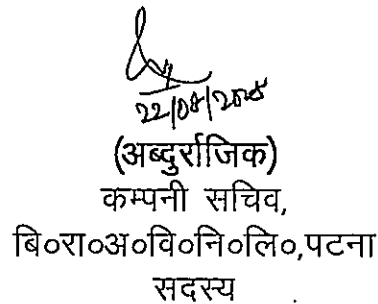 22/08/2025
(अब्दुर्राजिक)
कम्पनी सचिव,
बि०रा०अ०वि०नि०लि०,पटना
सदस्य